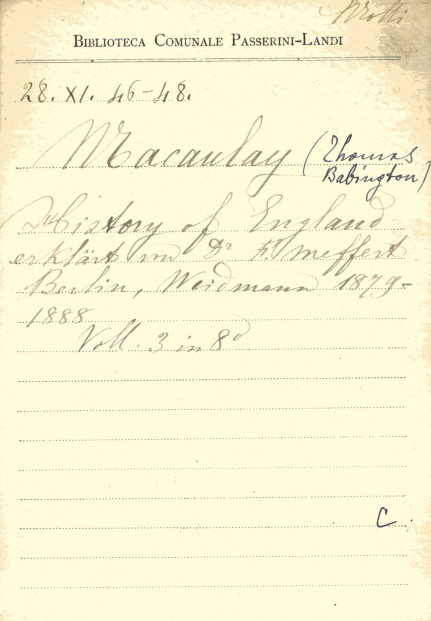 Motti
BIBLIOTECA COMUNALE PASSERINI-LANDI
28. XI. 46-48.
Macaulay (Thomas
Babington)
History of England
erklärt von Dr F. Meffert
Berlin, Weidmann 1879-
1888
Voll. 3 in 8º
C.